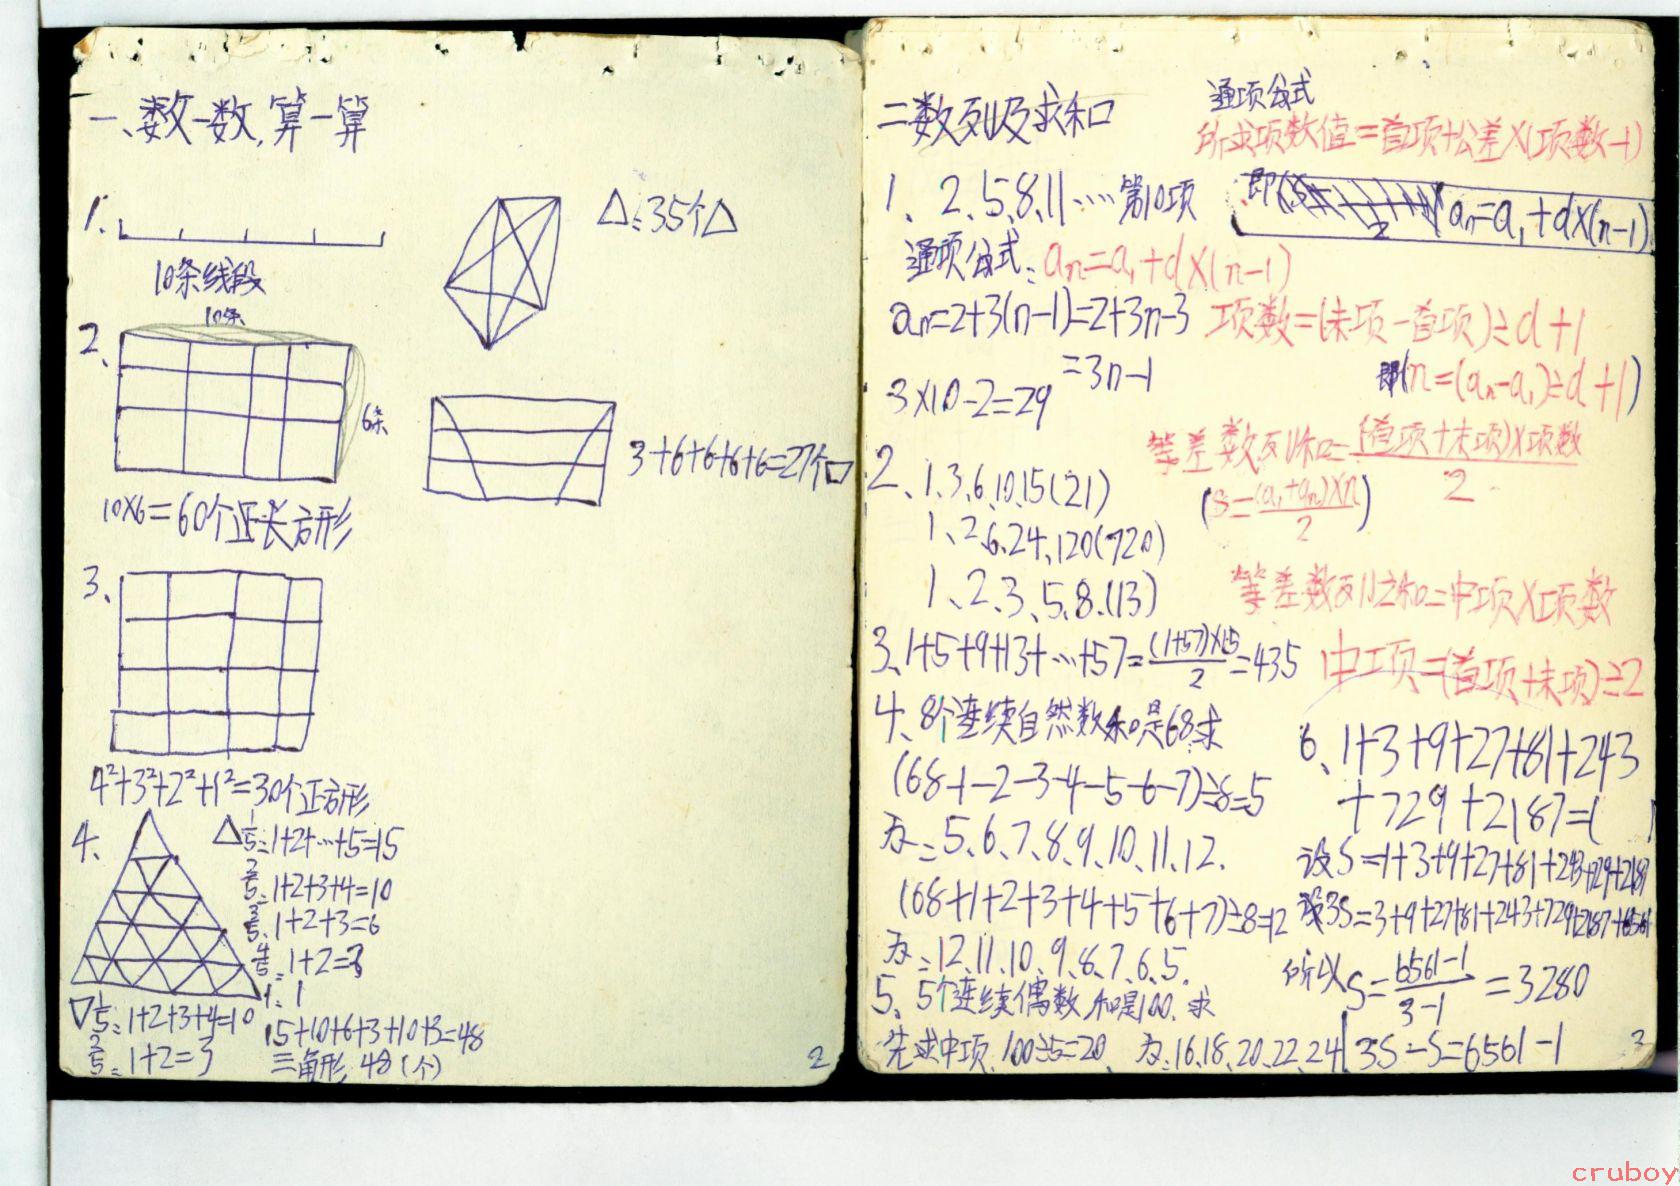 一、数一数,算一算
1、
10条线段
2、
10条
6条
10×6=60个正长方形
3、
4²+3²+2²+1²=30个正方形
4、
△ 1/5:1+2+…+5=15
2/5:1+2+3+4=10
3/5:1+2+3=6
4/5:1+2=3
1、1
▽ 1/5:1+2+3+4=10
2/5:1+2=3
15+10+6+3+10+3=48
三角形 48(个)
△:35个△
3+6+6+6+6=27个
2
二数列及求和
通项公式
所求项数值=首项+公差×(项数-1)
即
an=a1+d×(n-1)
1、2、5、8、11……第10项
通项公式:an=a1+d×(n-1)
an=2+3(n-1)=2+3n-3
=3n-1
3×10-2=29
项数=(末项-首项)÷d+1
即(n=(an-a1)÷d+1)
等差数列和=(首项+末项)×项数/2
(S=(a1+an)×n/2)
2、1、3、6、10、15(21)
1、2、6、24、120(720)
1、2、3、5、8、(13)
等差数列之和=中项×项数
中项=(首项+末项)÷2
3、1+5+9+13+…+57=(1+57)×15/2=435
4、8个连续自然数和是68求
(68-1-2-3-4-5-6-7)÷8=5
为:5、6、7、8、9、10、11、12.
(68+1+2+3+4+5+6+7)÷8=12
为:12、11、10、9、8、7、6、5.
5、5个连续偶数,和是100,求
先求中项:100÷5=20 为:16、18、20、22、24
6、1+3+9+27+81+243
+729+2187=( )
设S=1+3+9+27+81+243+729+2187
设3S=3+9+27+81+243+729+2187+6561
所以S=6561-1/3-1=3280
3S-S=6561-1
3
cruboy